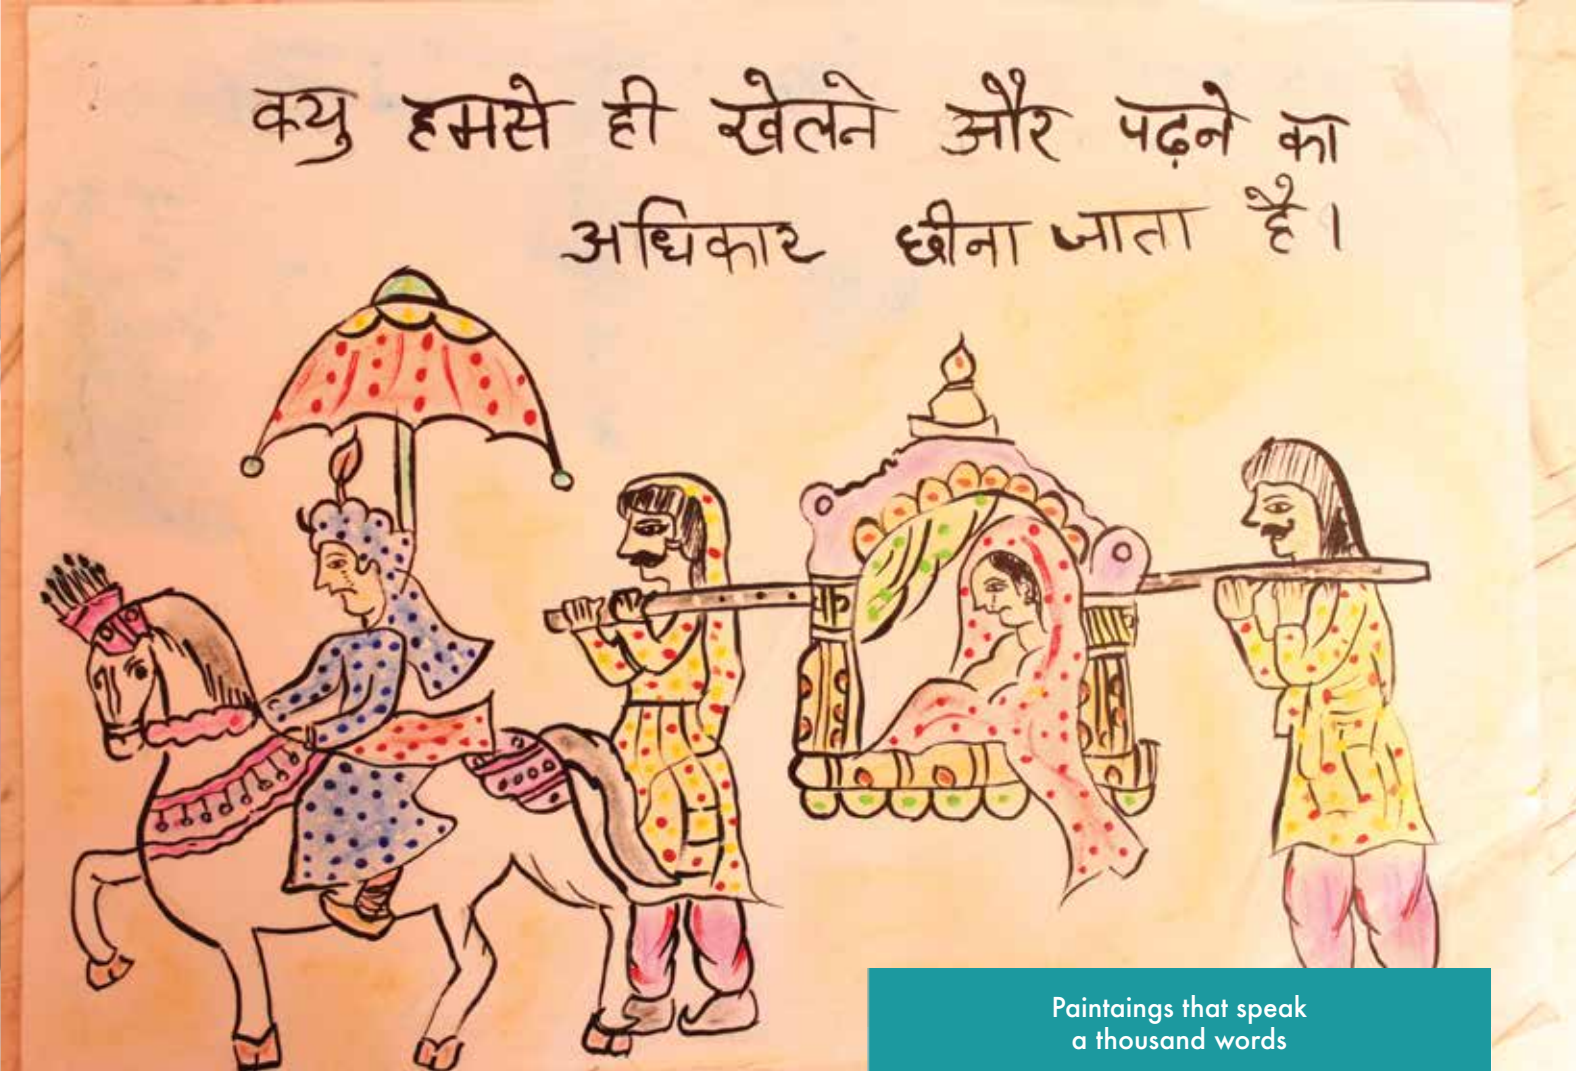 क्यु हमसे ही खेलने और पढ़ने का
अधिकार छीना जाता है।
Paintaings that speak
a thousand words